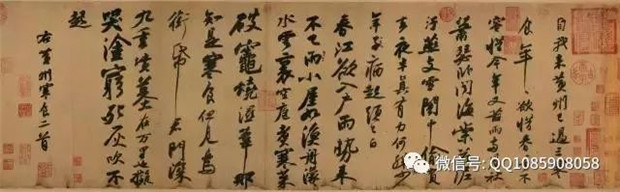 自我来黄州已過三寒
食年々欲惜春春去不
容惜今年又苦雨兩月秋
蕭瑟卧聞海棠花泥
汙燕支雪闇中偷負
去夜半真有力何殊少
年子病起頭已白
春江欲入户雨勢来
不已雨小屋如漁舟濛々
水雲裏空庖煮寒菜
破竈燒濕葦那
知是寒食但見烏
銜帋君門深
九重墳墓在万里也擬
哭塗窮死灰吹不
起
右黄州寒食二首
微信号: QQ1085908058